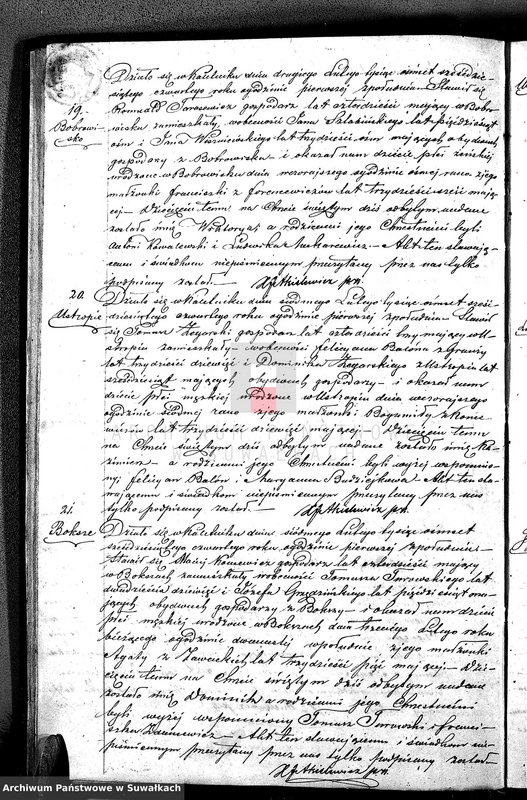 19.
Bobrowisko
Działo się w Kaletniku dnia drugiego Lutego tysiąc ośmset sześćdzie-
siątego czwartego roku o godzinie pierwszej z południa. Stawił się
Romuald gospodarz lat czterdzieści mający w Bobro-
wisku zamieszkały, w obecności Jana lat pięćdziesiąt
ośm i Jana lat trzydzieści ośm mających obydwóch
gospodarzy z Bobrowiska i okazał nam dziecię płci żeńskiej
urodzone w Bobrowisku dnia wczorajszego o godzinie ósmej rano z jego
małżonki Franciszki z lat trzydzieści sześć mają-
cej. Dziecięciu temu na Chrzcie świętym dziś odbytym nadane
zostało imię Wiktorya, a rodzicami jego Chrzestnemi byli
Antoni Kowalewski i Ludwika Makarewicz. Akt ten stawają-
cemu i świadkom niepiśmiennym przeczytany przez nas tylko
podpisany został.
20.
Ustropie
Działo się w Kaletniku dnia siódmego Lutego tysiąc ośmset sześć-
dziesiątego czwartego roku o godzinie pierwszej z południa. Stawił
się Tomasz Zegarski gospodarz lat czterdzieści trzy mający w U-
stropiu zamieszkały w obecności Felicyana Balona z
lat trzydzieści dziewięć i Dominika Zegarskiego z Ustropia lat
sześćdziesiąt mających obydwóch gospodarzy i okazał nam
dziecię płci męzkiej urodzone w Ustropiu dnia wczorajszego
o godzinie siódmej rano z jego małżonki Bogumiły z
lat trzydzieści dziewięć mającej. Dziecięciu temu
na Chrzcie świętym dziś odbytym nadane zostało imię Ka-
zimierz a rodzicami jego Chrzestnemi byli wyżej wspomnio-
ny Felicyan Balon i Maryanna. Akt ten sta-
wającemu i świadkom niepiśmiennym przeczytany przez nas
tylko podpisany został.
21.
Boksze
Działo się w Kaletniku dnia siódmego Lutego tysiąc ośmset
sześćdziesiątego czwartego roku o godzinie pierwszej z południa.
Stawił się Maciej gospodarz lat czterdzieści mający
w Bokszach zamieszkały w obecności Tomasza Turowskiego lat
dwadzieścia dziewięć i Józefa lat pięćdziesiąt ma-
jących obydwóch gospodarzy z Bokszy i okazał nam dziecię
płci męzkiej urodzone w Bokszach dnia trzeciego Lutego roku
bieżącego o godzinie dwunastej w południe z jego małżonki
Agaty z lat trzydzieści pięć mającej. Dzie-
cięciu temu na Chrzcie świętym dziś odbytym nadane
zostało imię Dominik a rodzicami jego Chrzestnemi
byli wyżej wspomniony Tomasz Turowski i Franci-
szka. Akt ten stawającemu i świadkom nie-
piśmiennym przeczytany przez nas tylko podpisany został.
Archiwum Państwowe w Suwałkach